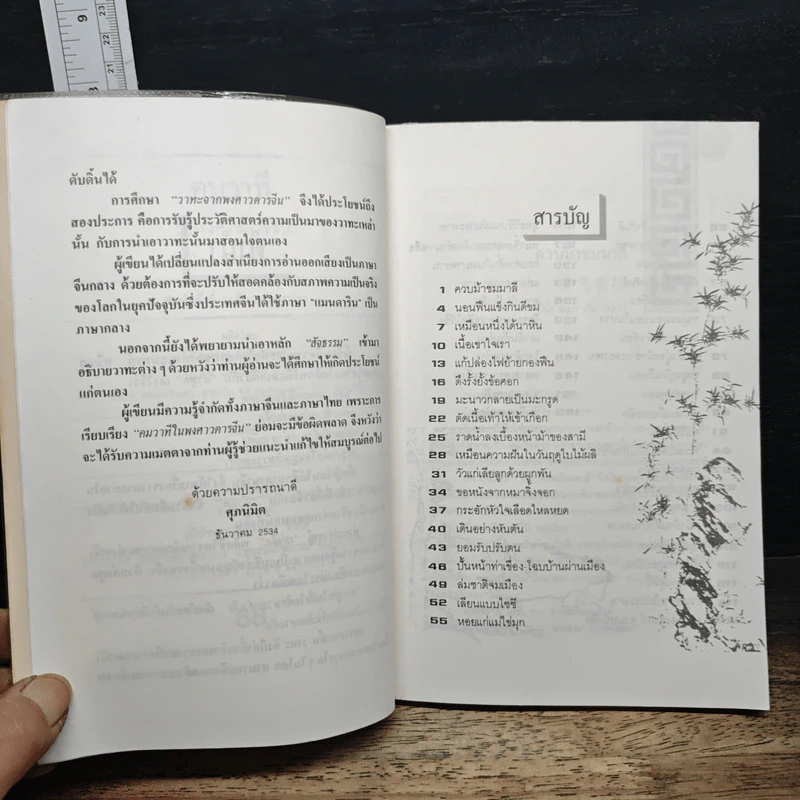 9
23
22
21
8
ดับดิ้นได้
การศึกษา "วาทะจากพงศาวดารจีน" จึงได้ประโยชน์ถึง
สองประการ คือการรับรู้ประวัติศาสตร์ความเป็นมาของวาทะเหล่า
นั้น กับการนำเอาวาทะนั้นมาสอนใจตนเอง
ผู้เขียนได้เปลี่ยนแปลงสำเนียงการอ่านออกเสียงเป็นภาษา
จีนกลาง ด้วยต้องการที่จะปรับให้สอดคล้องกับสภาพความเป็นจริง
ของโลกในยุคปัจจุบันซึ่งประเทศจีนได้ใช้ภาษา "แมนดาริน" เป็น
ภาษากลาง
นอกจากนี้ยังได้พยายามนำเอาหลัก "สัจธรรม" เข้ามา
อธิบายวาทะต่าง ๆ ด้วยหวังว่าท่านผู้อ่านจะได้ศึกษาให้เกิดประโยชน์
แก่ตนเอง
ผู้เขียนมีความรู้จำกัดทั้งภาษาจีนและภาษาไทย เพราะการ
เรียบเรียง "คมวาทีในพงศาวดารจีน" ย่อมจะมีข้อผิดพลาด จึงหวังว่า
จะได้รับความเมตตาจากท่านผู้รู้ช่วยแนะนำแก้ไขให้สมบูรณ์ต่อไป
ด้วยความปรารถนาดี
ศุภนิมิต
ธันวาคม 2534
สารบัญ
1 ควบม้าชมมาลี
4 นอนฟืนแข็งกินดีขม
7 เหมือนหนึ่งได้นาหิน
10 เนื้อเขาใจเรา
13 แก้ปล่องไฟย้ายกองฟืน
16 ดึงรั้งยั้งข้อศอก
19 มะนาวกลายเป็นมะกรูด
22 ตัดเนื้อเท้าให้เข้าเกือก
25 ราดน้ำลงเบื้องหน้าม้าของสามี
28 เหมือนความฝันในวันฤดูใบไม้ผลิ
31 วัวแก่เลียลูกด้วยผูกพัน
34 ขอหนังจากหมาจิ้งจอก
37 กระอักหัวใจเลือดไหลหยด
40 เดินอย่างหันตัน
43 ยอมรับปรับตน
46 ปั้นหน้าท่าเขื่อง โฉบบ้านผ่านเมือง
49 ล่มชาติจมเมือง
52 เลียนแบบไซซี
55 หอยแก่แม่ไข่มุก